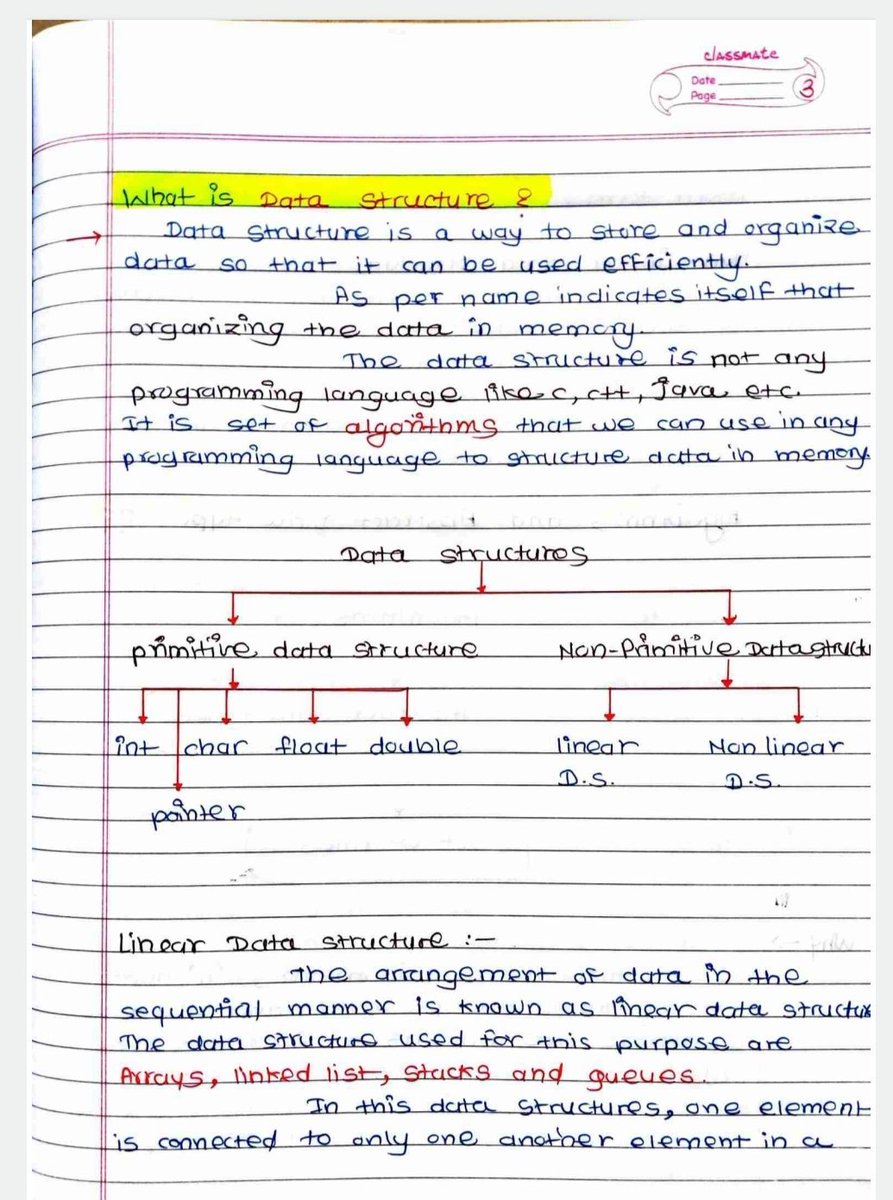 classmate
Date
Page
3
What is Data Structure ?
Data Structure is a way to store and organize
data so that it can be used efficiently.
As per name indicates itself that
organizing the data in memory.
The data structure is not any
programming language like c, c++, Java etc.
It is set of algorithms that we can use in any
programming language to structure data in memory
Data structures
primitive data structure Non-Primitive Datastructu
int char float double linear Non linear
D.S. D.S.
pointer
Linear Data structure :-
The arrangement of data in the
sequential manner is known as linear data structure
The data structure used for this purpose are
Arrays, linked list, Stacks and queues.
In this data structures, one element
is connected to only one another element in a